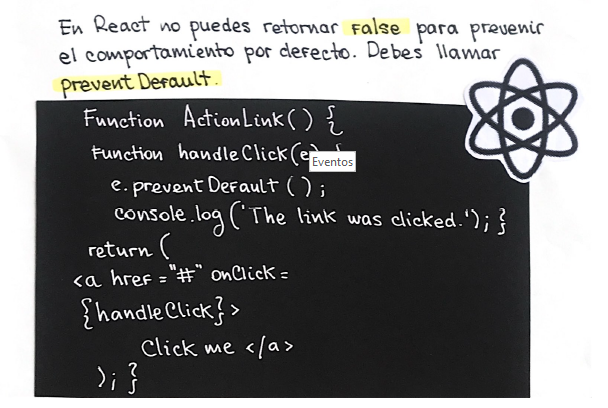 En React no puedes retornar False para prevenir
el comportamiento por defecto. Debes llamar
prevent Default.
Function ActionLink() {
Function handleClick(e) {
Eventos
e.preventDefault();
console.log('The link was clicked.'); }
return (
<a href="#" onClick=
{handleClick}>
Click me </a>
); }